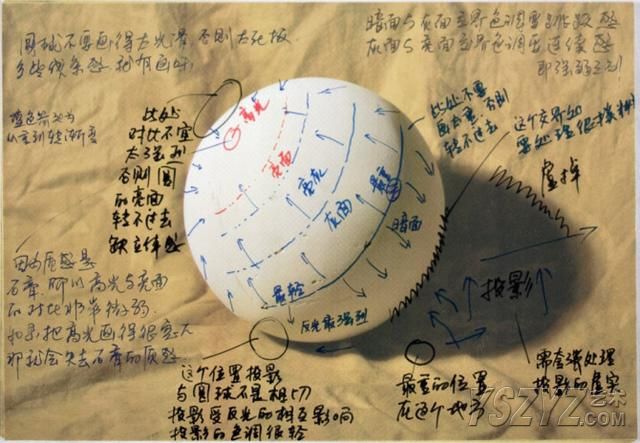 圆球不要画得太光滑 否则太死板
多些线条感 就有画味
暗面与灰面交界色调要
灰面与亮面交界色调要连续感
蓝色箭头为
从重到轻渐变
此处
对比不宜
太强烈
否则圆
的亮面
转不过去
缺立体感
高光
亮面
亮灰
灰面
最重
暗面
最轻
反光最强烈
此处不要
画太重,否则
转不过去
这个交界如
要处理很
虚掉
投影
因为质感是
石膏,所以高光与亮面
的对比非常微弱.
如果把高光画得很
那就会失去石膏的质感.
这个位置投影
与圆球不是相切
投影受反光的相互影响
投影的色调很轻
最重的位置
在这个地方
需要强处理
投影的虚实
YSZYZ.艺术
.COM